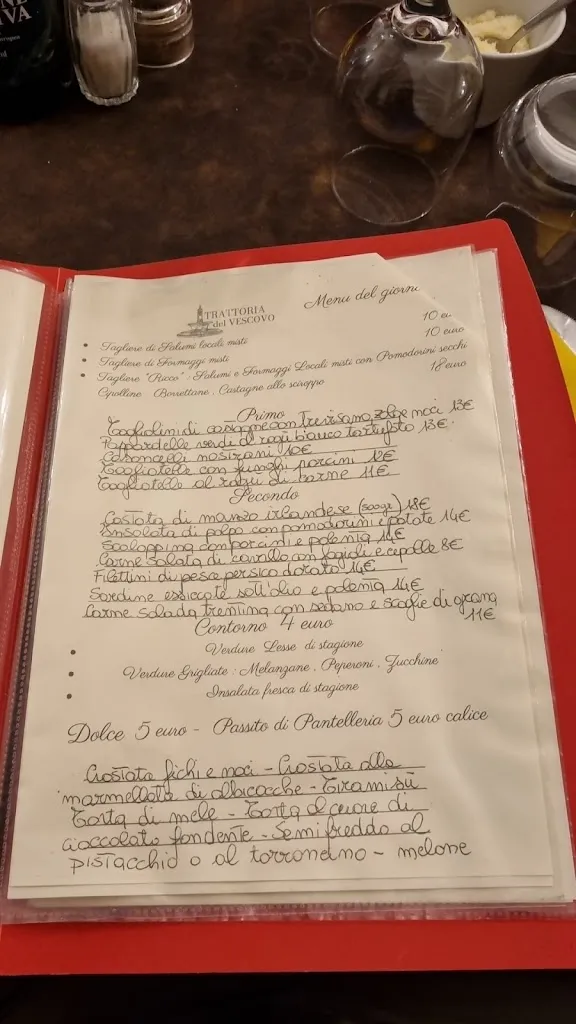 NE
IVA
TRATTORIA
del VESCOVO
Menu del giorno
Tagliere di Salumi locali misti 10 eu
Tagliere di Formaggi misti 10 euro
Tagliere "Ricco" : Salumi e Formaggi Locali misti con Pomodorini secchi 18 euro
Cipolline Borrettane, Castagne allo sciroppo
Primo
Tagliolini di castagne con trevisano zola e noci 13€
Pappardelle verdi al ragù bianco tartufato 13€
Casoncelli nostrani 10€
Tagliatelle con funghi porcini 12€
Tagliatelle al ragù di carne 11€
Secondo
Costata di manzo irlandese (500gr) 18€
Insalata di polpo con pomodorini e patate 14€
Scaloppina con porcini e polenta 14€
Carne salata di cavallo con fagioli e cipolle 8€
Filettini di pesce persico dorato 14€
Sardine essicate sott'olio e polenta 14€
Carne salada trentina con sedano e scaglie di grana
11€
Contorno 4 euro
Verdure Lesse di stagione
Verdure Grigliate : Melanzane, Peperoni, Zucchine
Insalata fresca di stagione
Dolce 5 euro - Passito di Pantelleria 5 euro calice
Crostata fichi e noci - Crostata alla
marmellata di albicocche - Tiramisù
Torta di mele - Torta al cuore di
cioccolato fondente - Semifreddo al
pistacchio o al torroncino - melone